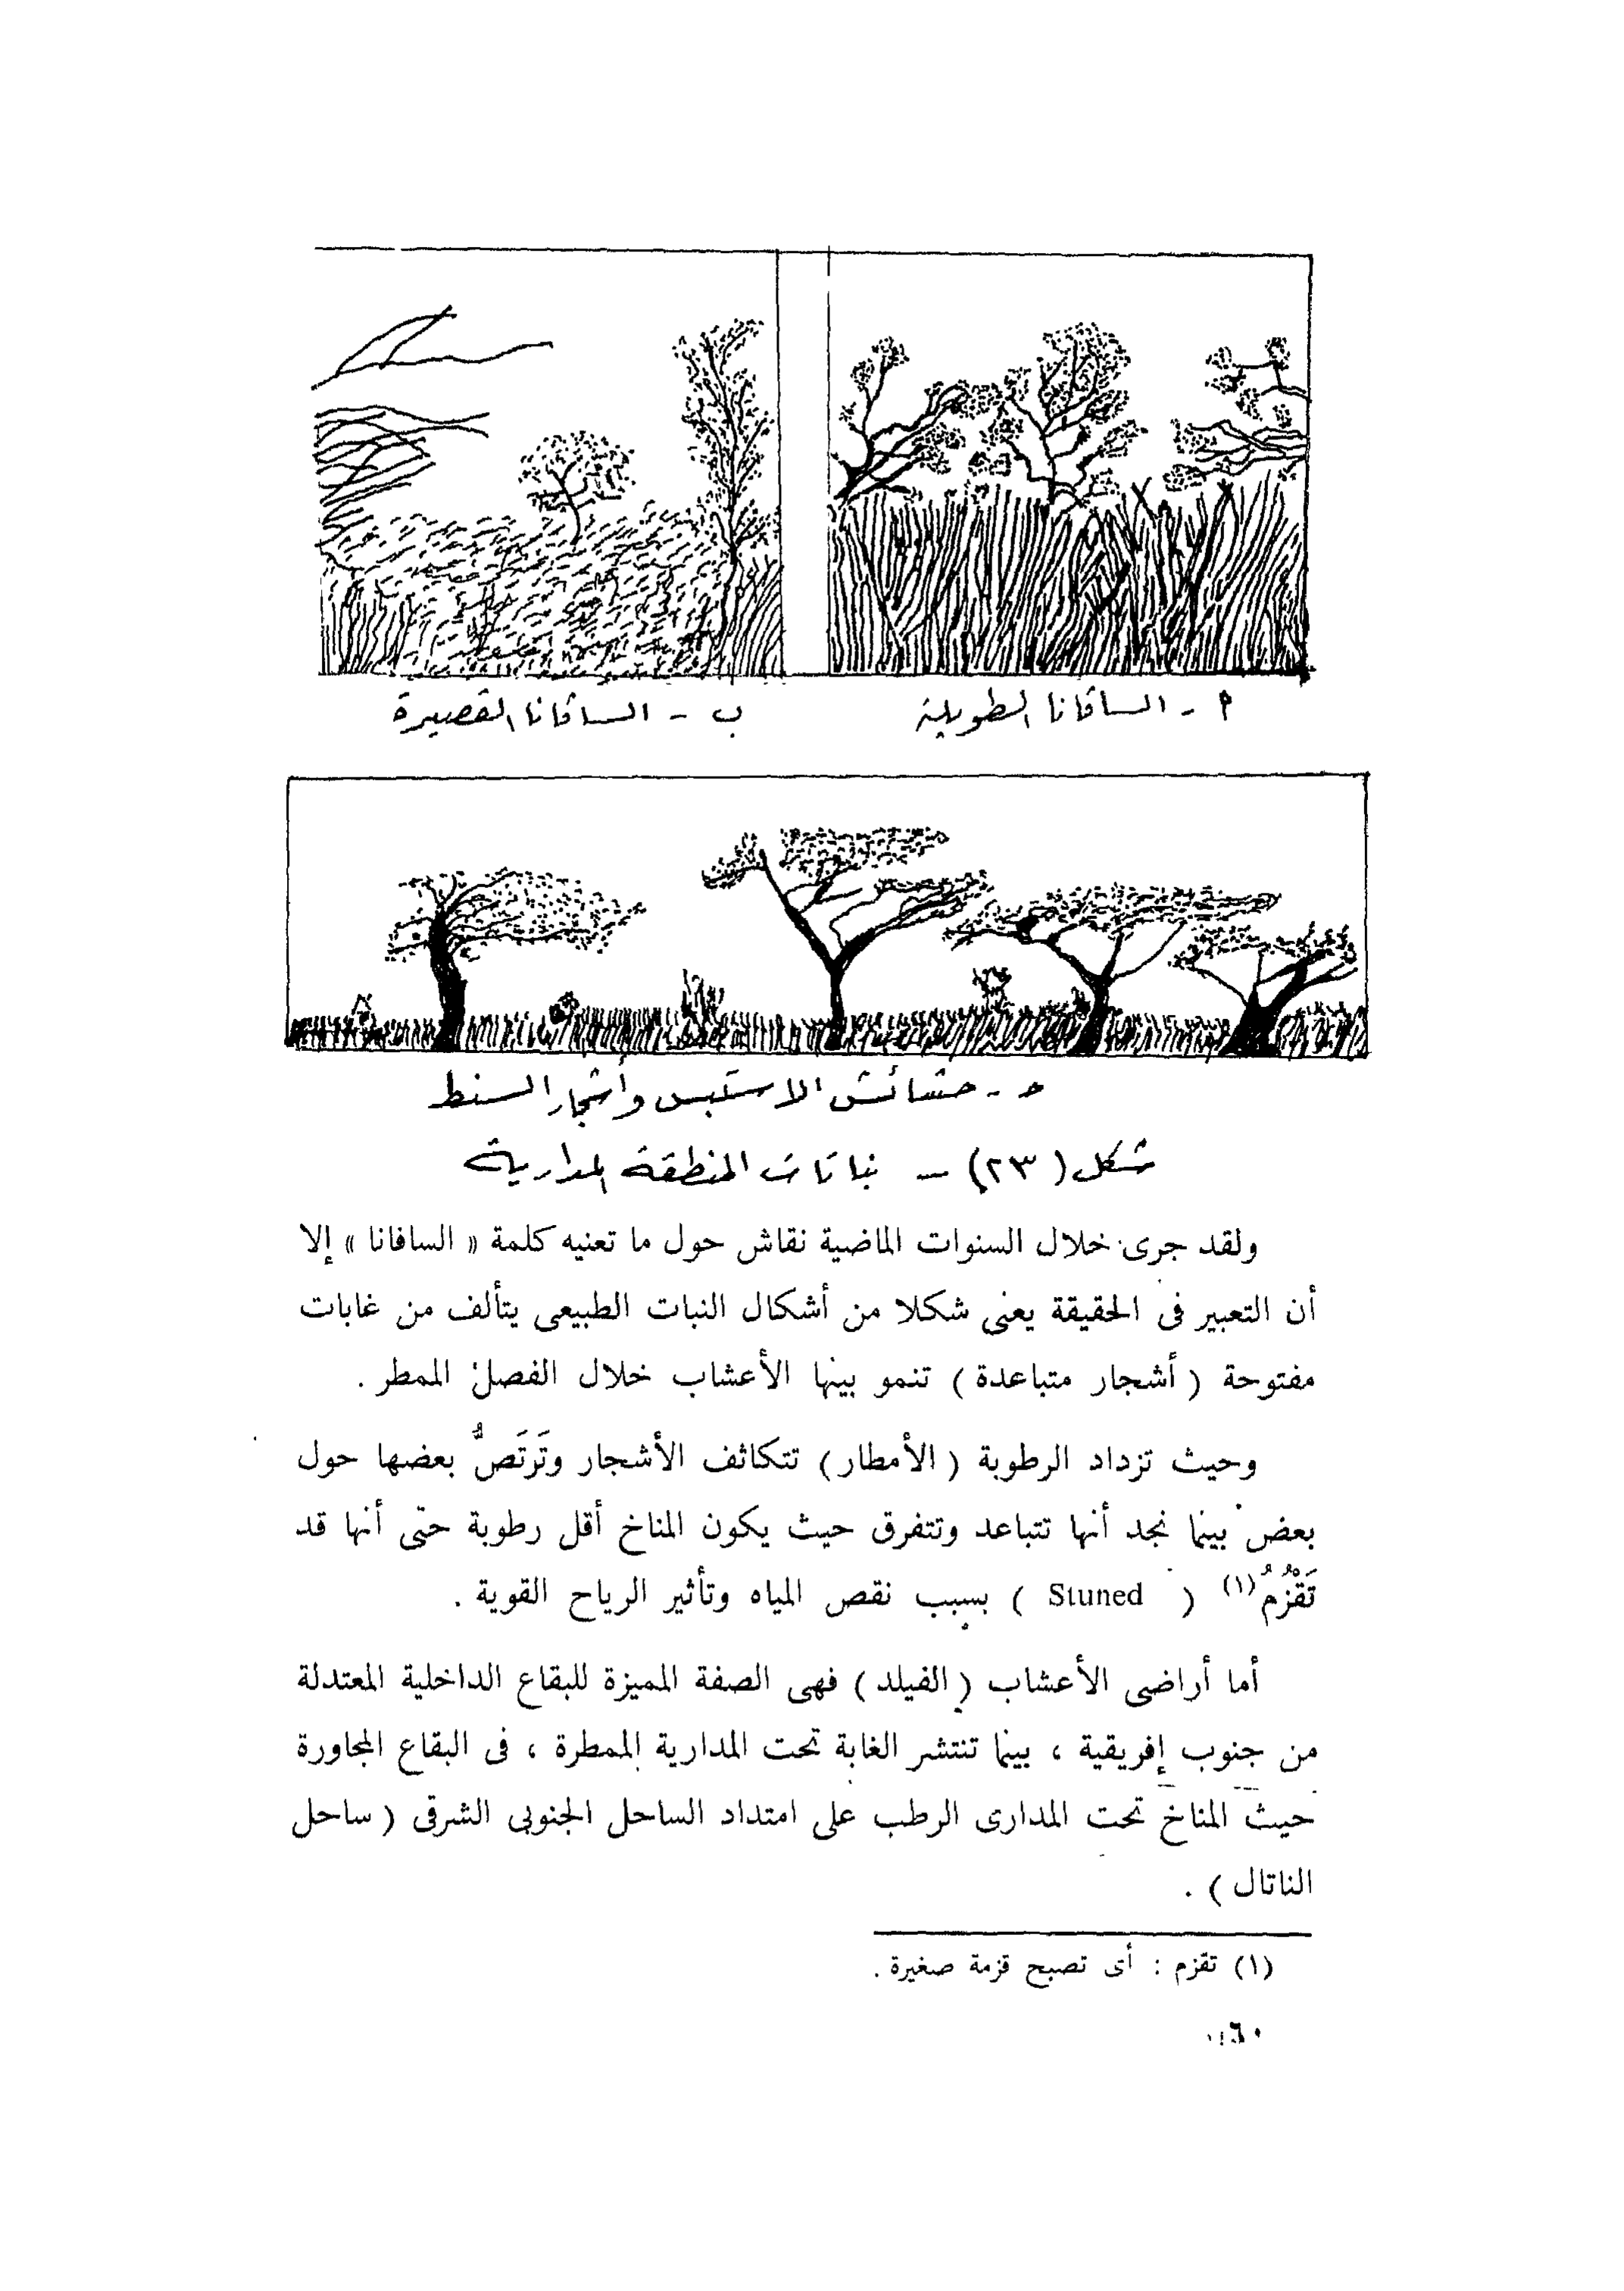 أ - السافانا الطويلة
ب - السافانا القصيرة
حـ - حشائش الاستبس وأشجار السنط
شكل (٢٣) - نباتات المنطقة المدارية
ولقد جرى خلال السنوات الماضية نقاش حول ما تعنيه كلمة « السافانا » إلا
أن التعبير فى الحقيقة يعنى شكلا من أشكال النبات الطبيعى يتألف من غابات
مفتوحة ( أشجار متباعدة ) تنمو بينها الأعشاب خلال الفصل الممطر .
وحيث تزداد الرطوبة ( الأمطار ) تتكاثف الأشجار وتَرتَصُّ بعضها حول
بعض بينما نجد أنها تتباعد وتتفرق حيث يكون المناخ أقل رطوبة حتى أنها قد
تَقْزُمُ (١) ( Stuned ) بسبب نقص المياه وتأثير الرياح القوية .
أما أراضى الأعشاب ( الفيلد ) فهى الصفة المميزة للبقاع الداخلية المعتدلة
من جنوب إفريقية ، بينما تنتشر الغابة تحت المدارية الممطرة ، فى البقاع المجاورة
حيث المناخ تحت المدارى الرطب على امتداد الساحل الجنوبى الشرقى ( ساحل
الناتال ) .
(١) تقزم : أى تصبح قزمة صغيرة .